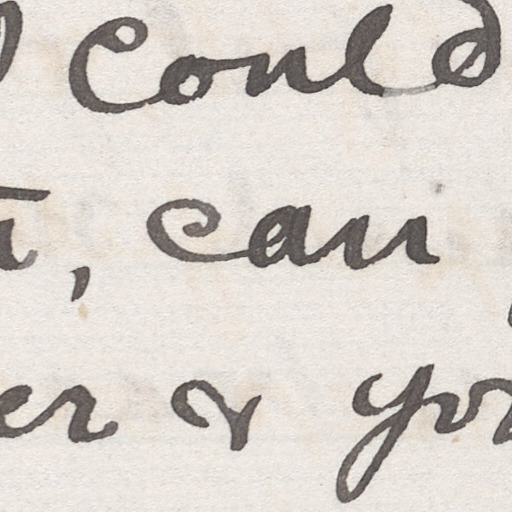 could
, can
er & yo